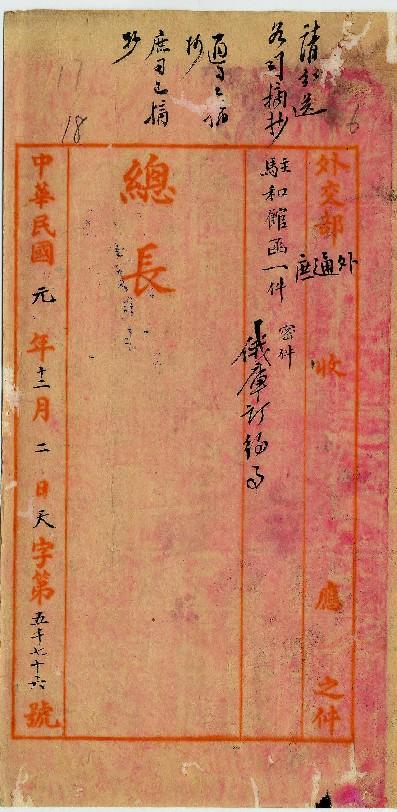 請分送
各司摘抄
通司已摘
抄
庶司已摘
抄
17
18
6
外交部 收 應 之件
外
通
庶
駐和館函一件
密件
俄庫訂約事
總長
中華民國元年十二月二日天字第五千七十六號